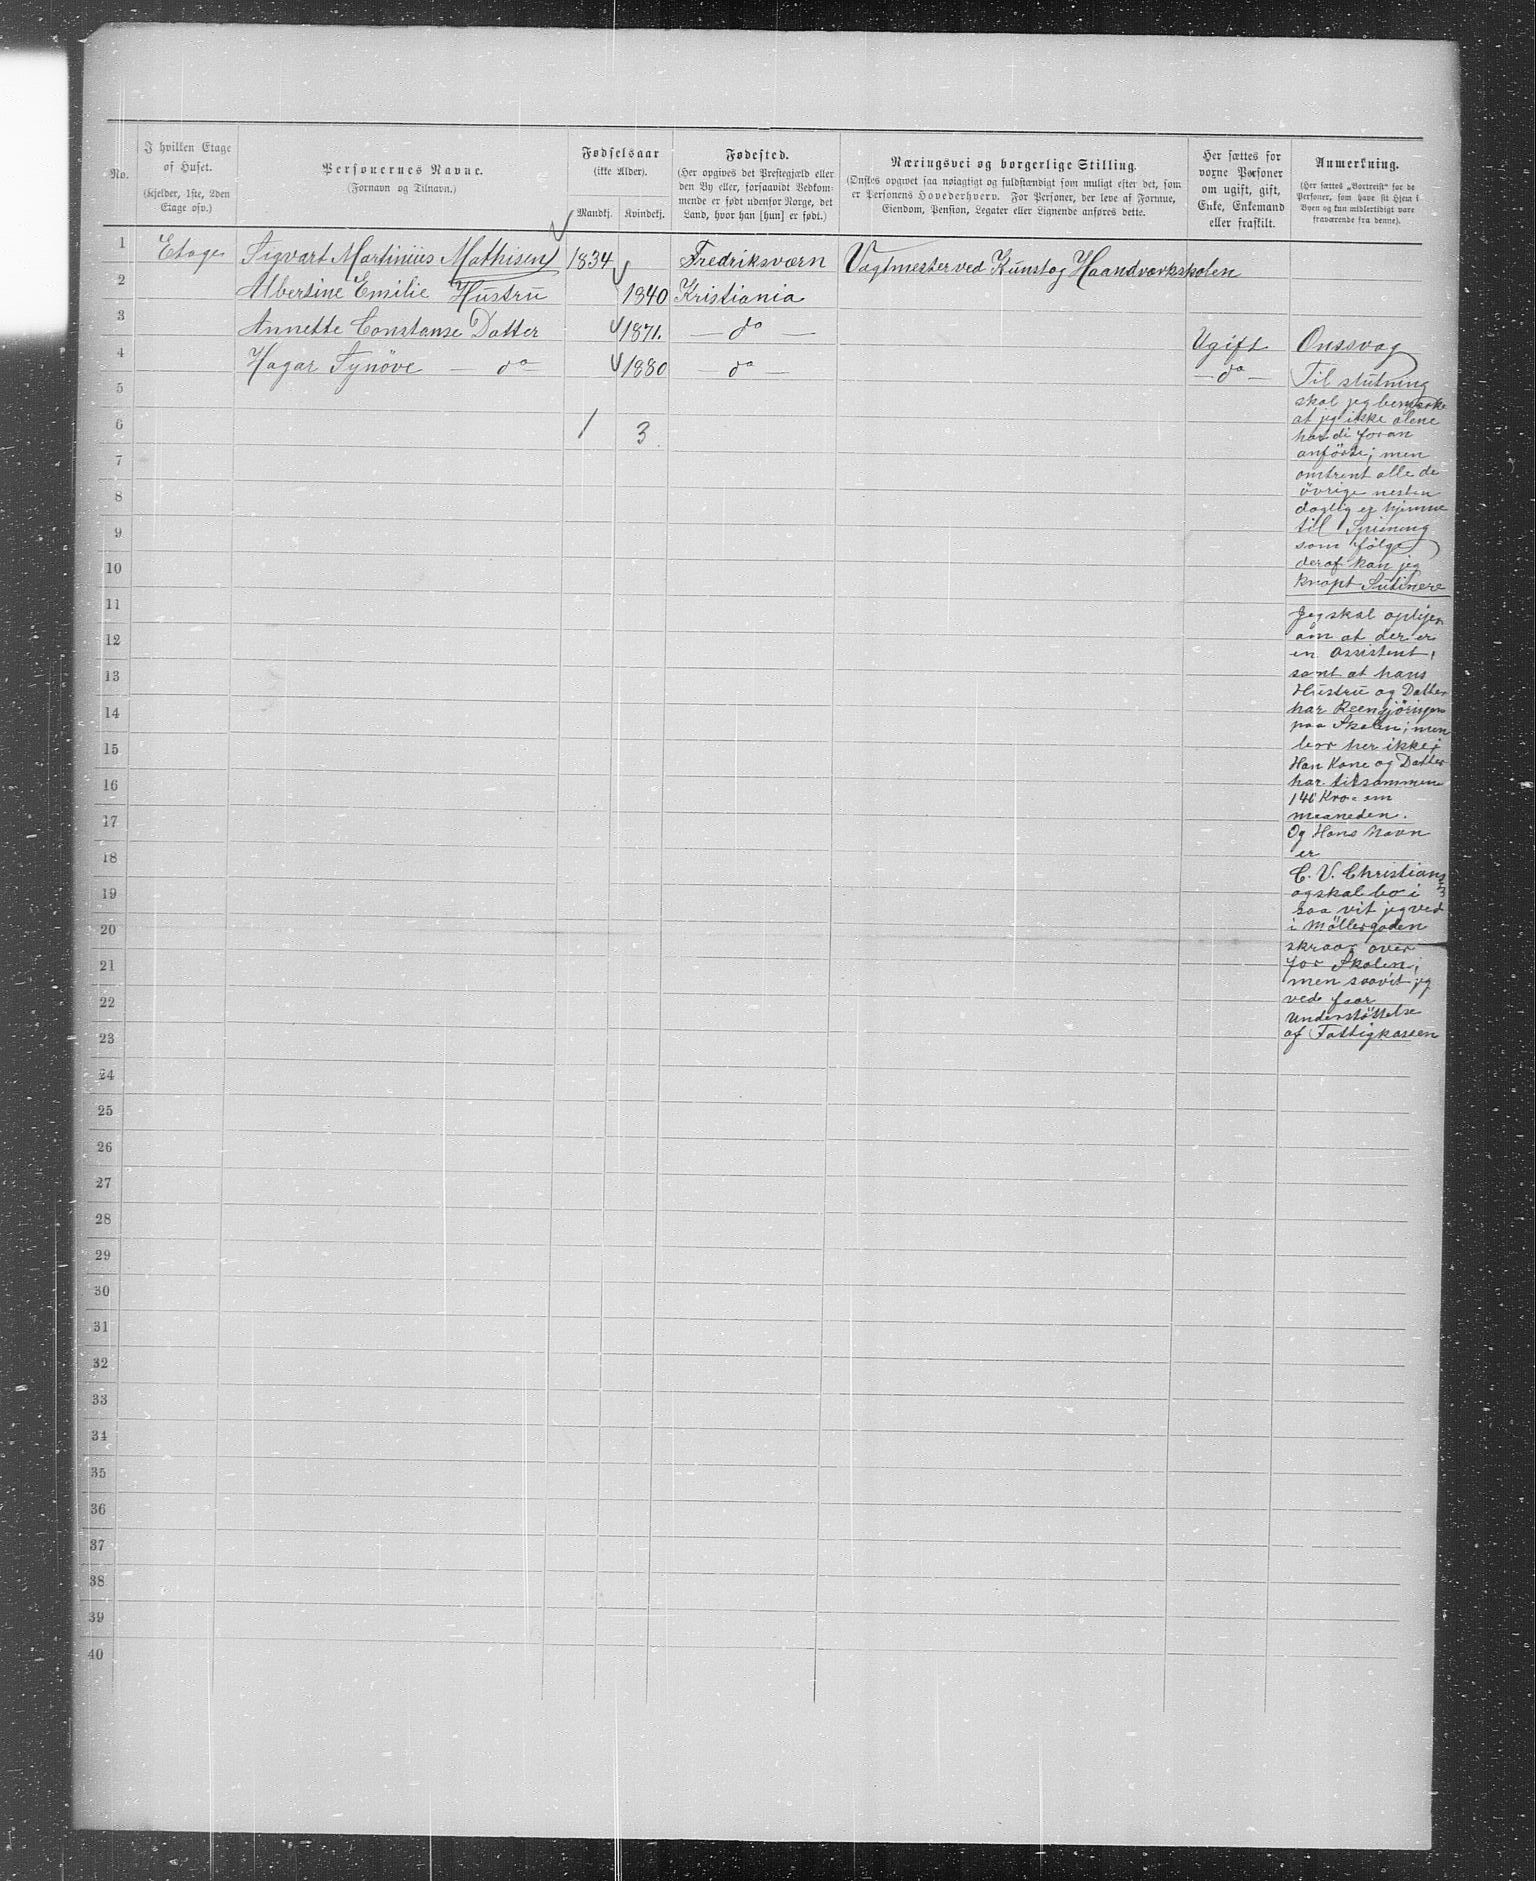 No.
I hvilken Etage
of Huset.
(Kjelder, 1ste, 2den
Etage osv.)
Personernes Navne.
(Fornavn og Tilnavn.)
Fødselsaar
(ikke Alder).
Mandkj.
Kvindekj.
Fødested.
(Her opgives det Prestegjæld eller
den By eller, forsaavidt Vedkom-
mende er født udenfor Norge, det
Land, hvor han [hun] er født.)
Næringsvei og borgerlige Stilling.
(Ønskes opgivet saa nøiagtigt og fuldstændigt som muligt efter det, som
er Personens Hovederhverv. For Personer, der leve af Formue,
Eiendom, Pension, Legater eller Lignende anføres dette.
Her sættes for
voxne Personer
om ugift, gift,
Enke, Enkemand
eller fraskilt.
Anmerkning.
(Her sættes „Bortreist“ for de
Personer, som have sit Hjem i
Byen og kun midlertidigt vare
fraværende fra denne).
1 Etage Sigvart Martinius Mathisen 1834 Fredriksværn Vagtmester ved Kunst og Haandværkskolen
2 Albertine Emilie Hustru 1840 Kristiania
3 Annette Constanse Datter 1871. — do — Ugift Onssvag
4 Hagar Synöve — do 1880 do — — do —
5
6 1 3
7
8
9
10
11
12
13
14
15
16
17
18
19
20
21
22
23
24
25
26
27
28
29
30
31
32
33
34
35
36
37
38
39
40
Til slutning
skal jeg bemærke
at jeg ikke alene
har di foran
anförte; men
omtrent alle de
övrige nesten
daglig er hjemme
til Spisning
som fölge
deraf kan jeg
knapt Sutinere
Jeg skal oplyse
om at der er
en assistent,
samt at hans
Hustru og Datter
har Reengjöringen
paa Skolen; men
bor her ikke;
Han Kone og Datter
har tilsammen
140 Kro- em
maaneden.
Og Hans Navn
er
C. V. Christians
og skal bo i
saa vit jeg ved
i Möllergaden
skraas over
for Skolen;
men saavit jeg
ved faar
Understöttelse
af Fattigkassen